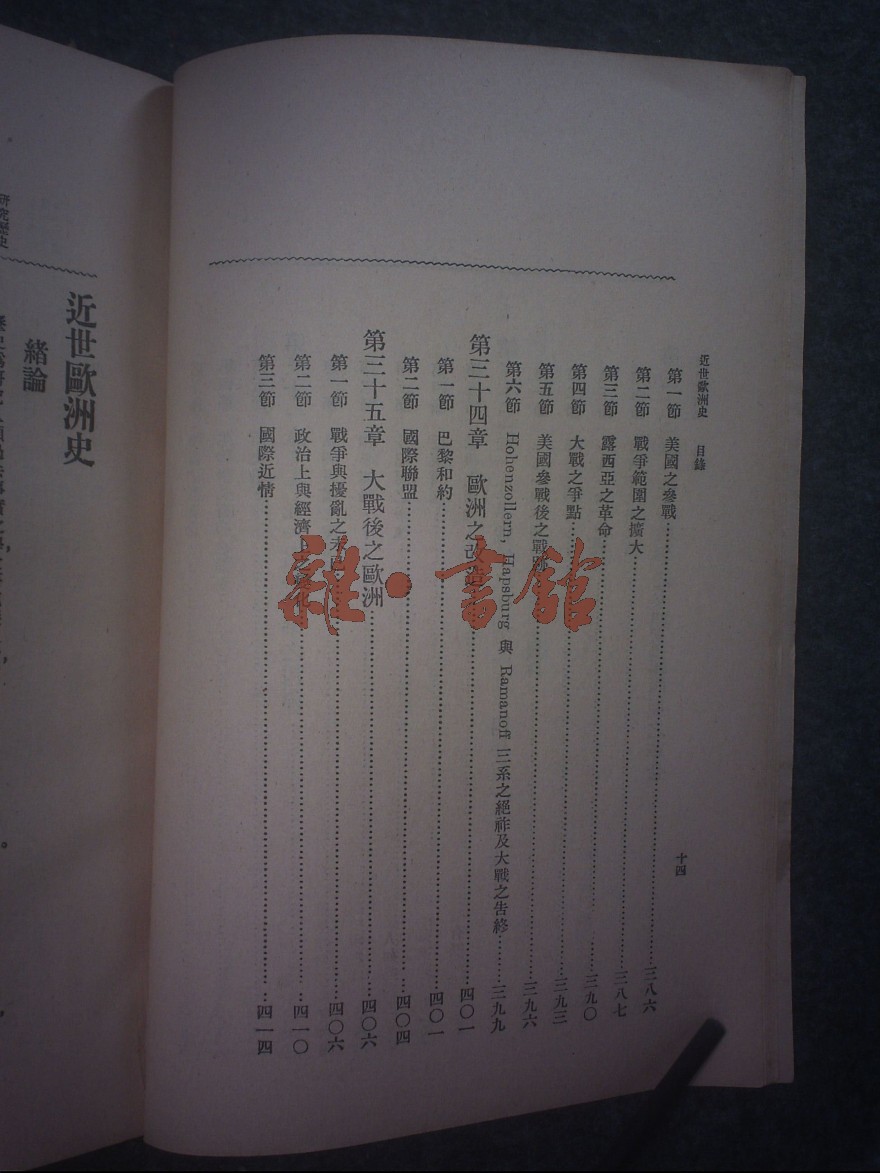 近世歐洲史 目錄
十四
第一節 美國之參戰……三八六
第二節 戰爭範圍之擴大……三八七
第三節 露西亞之革命……三九〇
第四節 大戰之爭點……三九三
第五節 美國參戰後之戰跡……三九六
第六節 Hohenzollern, Hapsburg 與 Ramanoff 三系之絕祚及大戰之告終……三九九
第三十四章 歐洲之改造……四〇一
第一節 巴黎和約……四〇一
第二節 國際聯盟……四〇四
第三十五章 大戰後之歐洲……四〇六
第一節 戰爭與擾亂之未已……四〇六
第二節 政治上與經濟上……四一〇
第三節 國際近情……四一四
雜·書館
研究歷史
近世歐洲史
緒論